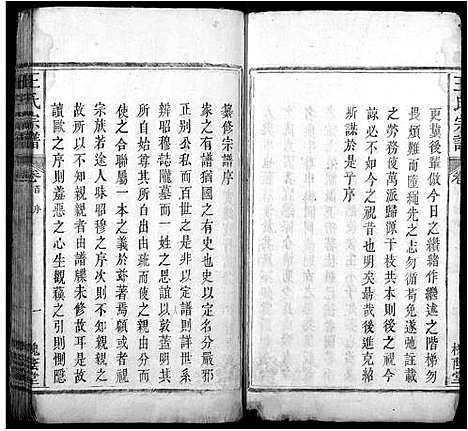 王氏宗譜
卷
更冀後輩倣今日之纘緒作繼述之階梯勿
畏煩難而墮繩先之志勿循苟免遂弛註載
之勞務俾萬派歸源千枝共本則後之視今
諒必不異於今之視昔矣明矣最哉後進克紹
斯謀於是乎序
槐蔭堂
纂修宗譜序
家之有譜猶國之有史也史以示
正別公私而百世之是非以定譜則詳世系
辨昭穆誌隴墓而一姓之恩誼以敦苟明其
所自始尊其所由出疏而使之親由分而
使之合聯屬一本之義於茲著焉顧或者視
宗族若途人昧昭穆之序而不知親親之
道者何也皆由譜牒未修故耳是故
讀歐之序則羞惡之心生觀蘓之引則惻隱
王氏宗譜
卷首 序
一
槐蔭堂